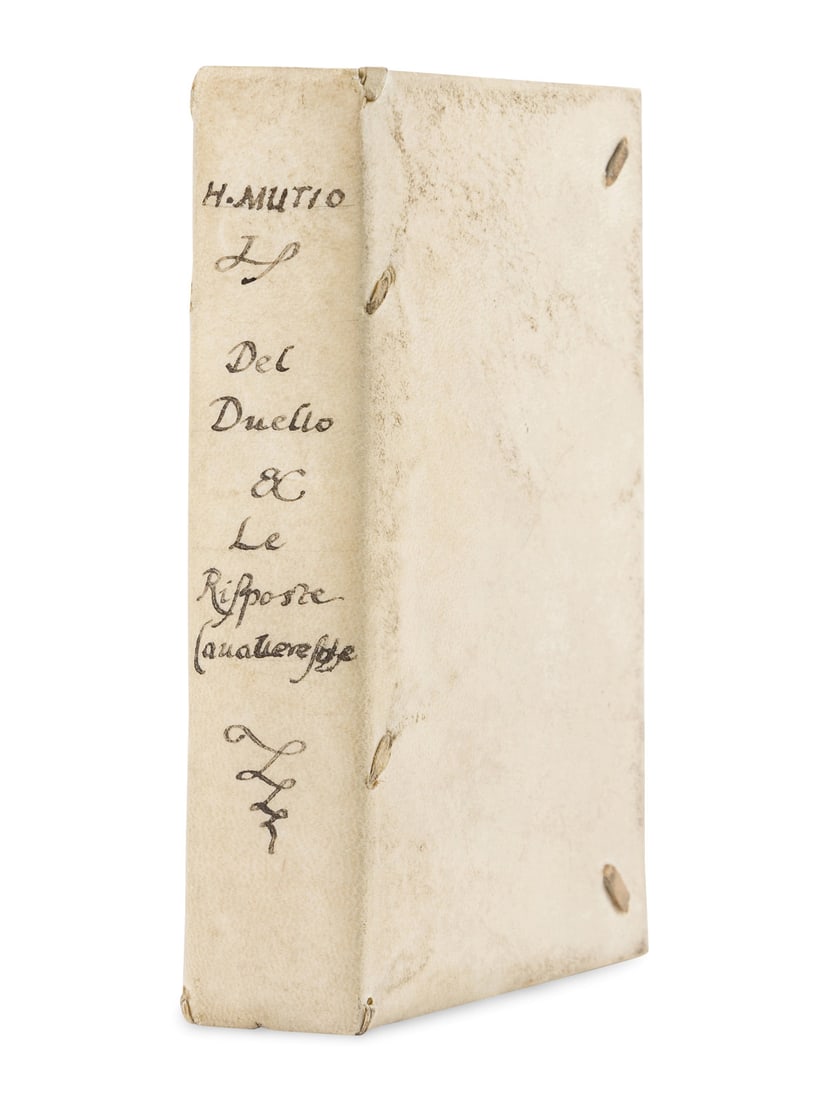 H. MUTIO
Del
Duello
&
Le
Riſposte
Caualereſche